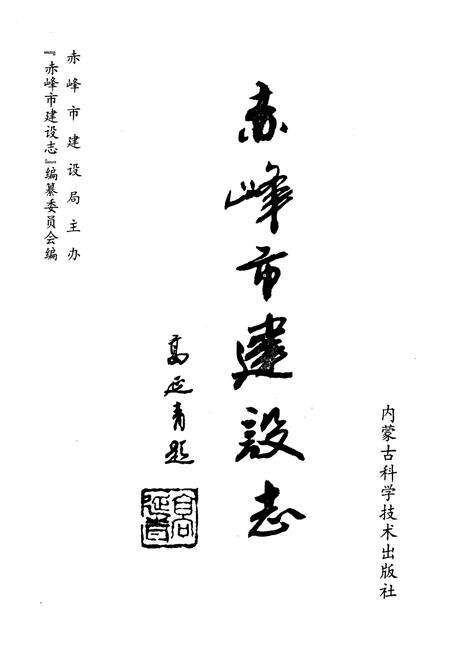 赤峰市建设局主办
『赤峰市建设志』编纂委员会编
赤峰市建設志
高延青题
高延青
内蒙古科学技术出版社